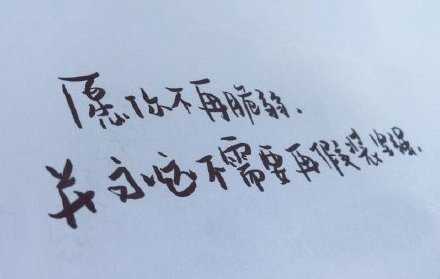 愿你不再脆弱.
并永远不需要再假装坚强.